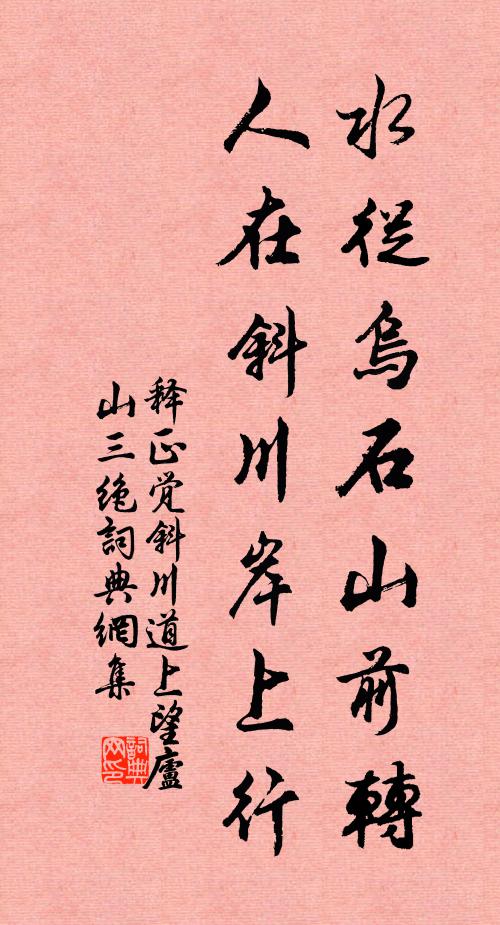 水從烏石山前轉
人在斜川岸上行
释正觉斜川道上望廬
山三绝詞典網集
詞典
网印